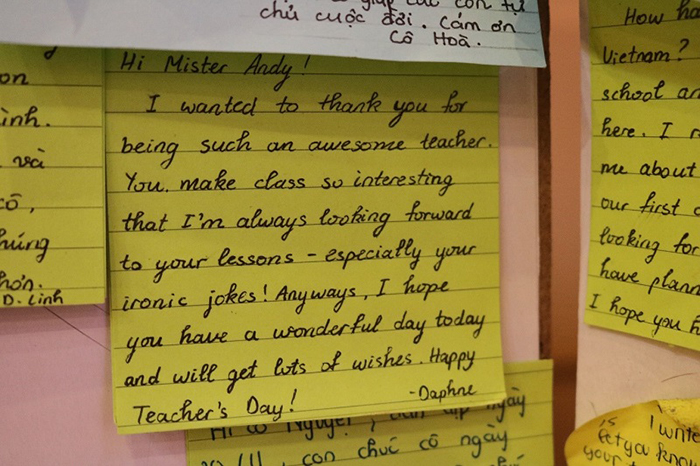 các con tự
chủ cuộc đời. Cám ơn
Cô Hoà.
on
ình.
và
cô,
húng
hơn.
D. Linh
Hi Mister Andy!
I wanted to thank you for
being such an awesome teacher.
You make class so interesting
that I'm always looking forward
to your lessons - especially your
ironic jokes! Anyways, I hope
you have a wonderful day today
and will get lots of wishes. Happy
Teacher's Day!
-Daphne
How ha
Vietnam?
school an
here. I
me about
our first
looking for
have plann
I hope you
ngày
con chúc cô ngày
I write
let you know
your